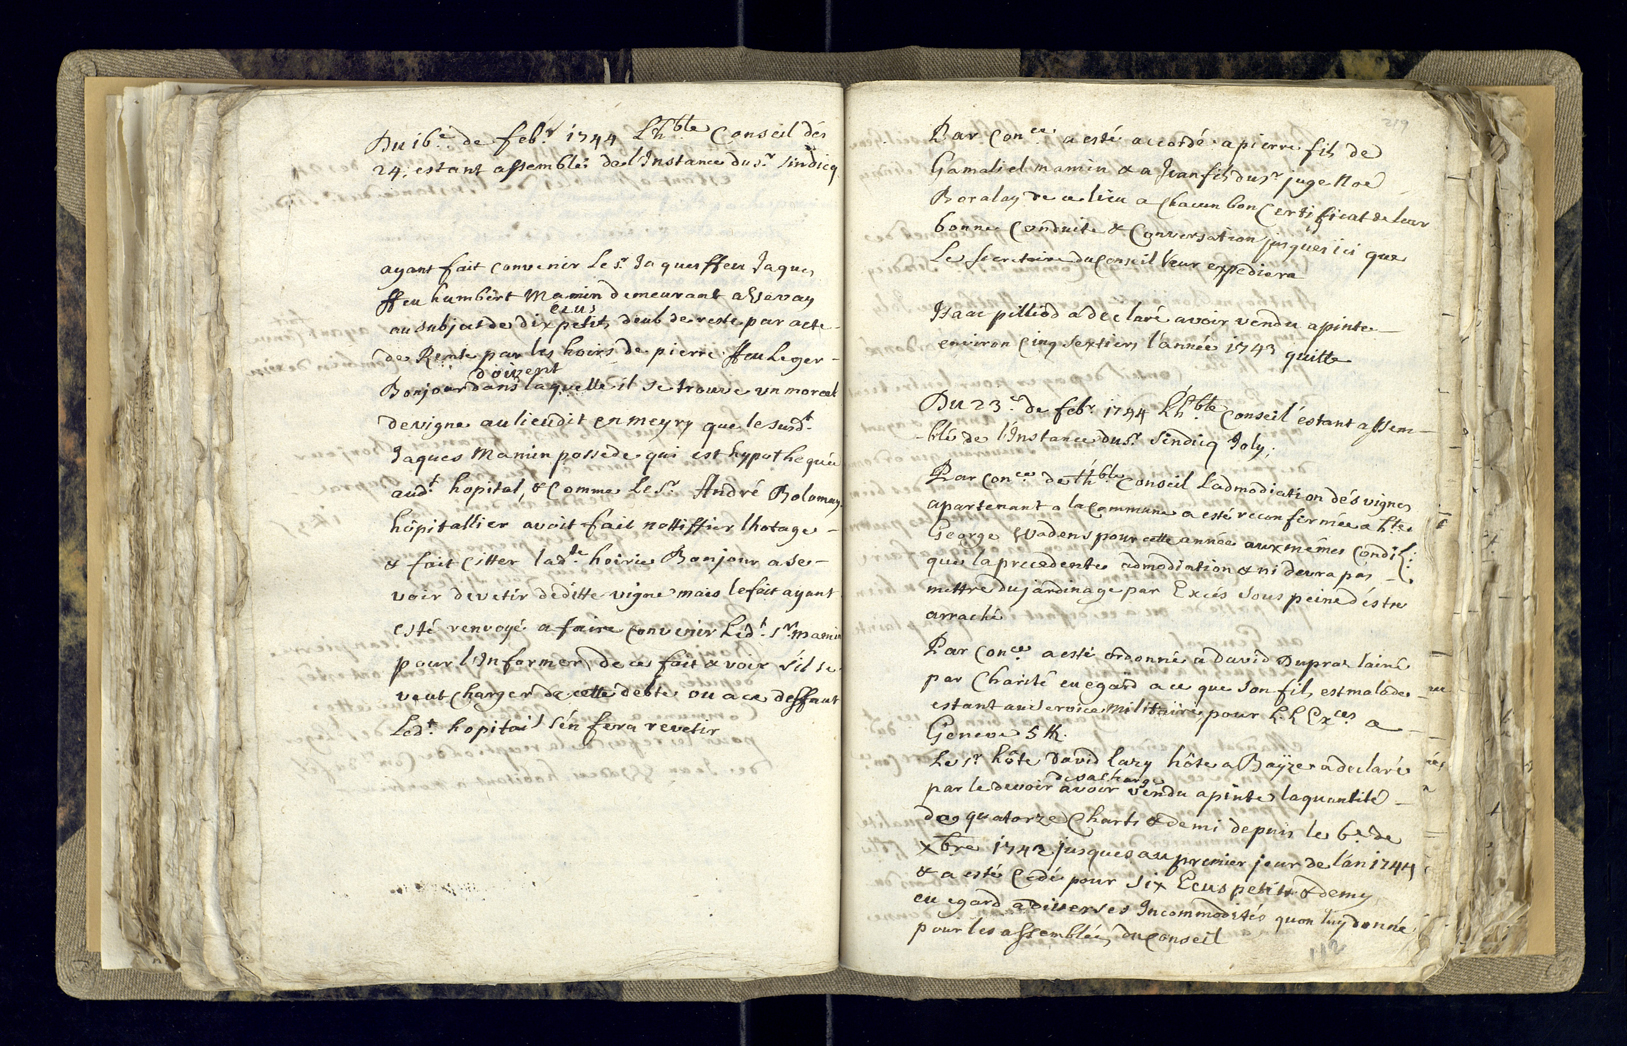 Du 16.e de febr. 1744 L'h.ble Conseil des
24. estant assemblé de l'Instance du sr. Sindicq
ayant fait convenir Le Sr. Jaques ffeu Jaques
ffeu humbert Mamin demeurant a
au subjet de dix ecus petits deub de reste par acte
de Rente par les hoirs de pierre ffeu Leger
Bonjour d'ouzent dans laquelle il se trouve un morcel
de vigne au lieu dit en meyry que le surd.t
Jaques Mamin possede qui est hypothequée
aud.t hopital, & Comme Le Sr. André Bolomay
hôpitallier avoit fait nottiffier lhotage
& fait Citter lad.te hoirie Bonjour a se
voir devetir de ditte vigne mais le fait ayant
esté renvoyé a faire convenir Led.t Sr. Mamin
pour l'Informer de ce fait & voir s'il se
veut charger de cette debte ou a ce deffaut
Led.t hopital s'en fera revetir
219
Par Con.ce a esté accordé a pierre fils de
Gamaliel mamin & a Jean fils du sr. juge Noé
Boralay de ce lieu a Chacun bon Certificat de leur
bonne Conduite & Conversation jusques ici que
Le Secretaire du Conseil leur expediera
Isaac pilliod a declaré avoir vendu a pinte
environ Cinq sextiers l'année 1743 quitte
Du 23.e de febr. 1744 L'h.ble Conseil estant assem-
-blé de l'Instance du sr. Sindicq Joly;
Par Con.ce de L'h.ble Conseil L'admodiation dés vignes
apartenant a la Commune a esté reconfermée a h.te
George Wadens pour cette année aux mêmes Condit.
que la precedente admodiation & ni devra pas
mettre du jardinage par Excés sous peine d'éstre
arraché
Par Con.ce a esté ordonné a David Dupraz lainé
par Charité eu egard a ce que son fils est malade
estant au service militaire pour L.L. Ex.ces a
Geneve 5 ft.
Le sr. hôte David Lazy hôte a Bayze a declaré
par le devoir de sa Charge avoir vendu a pinte la quantité
de quatorze Charts & demi depuis le 6.e de
xbre 1742 jusques au premier jour de l'an 1744
& a esté Cedé pour Six Ecus petits & demy
eu egard a diverses Incommodités quon luy donne
pour les assemblées du Conseil
112